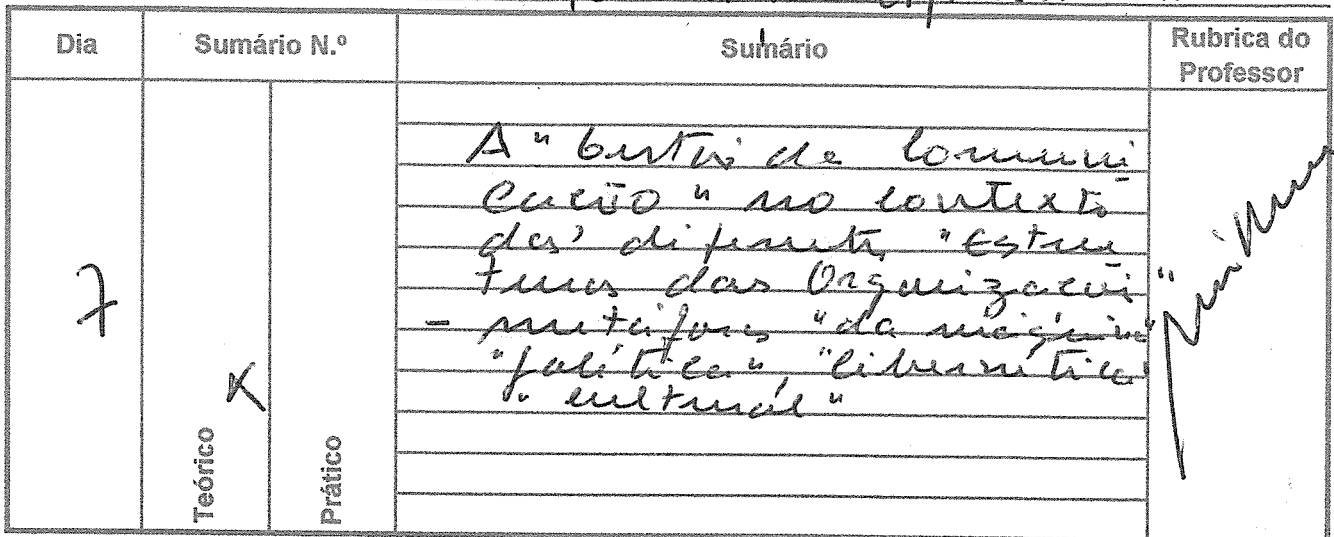 Dia
Sumário N.º
Sumário
Rubrica do
Professor
7
X
Teórico
Prático
A "Gestão de Comuni
cação" no contexto
das diferentes "Estru
turas das Organizações"
- metáforas "da máquina"
"política", "cibernética"
"cultural"